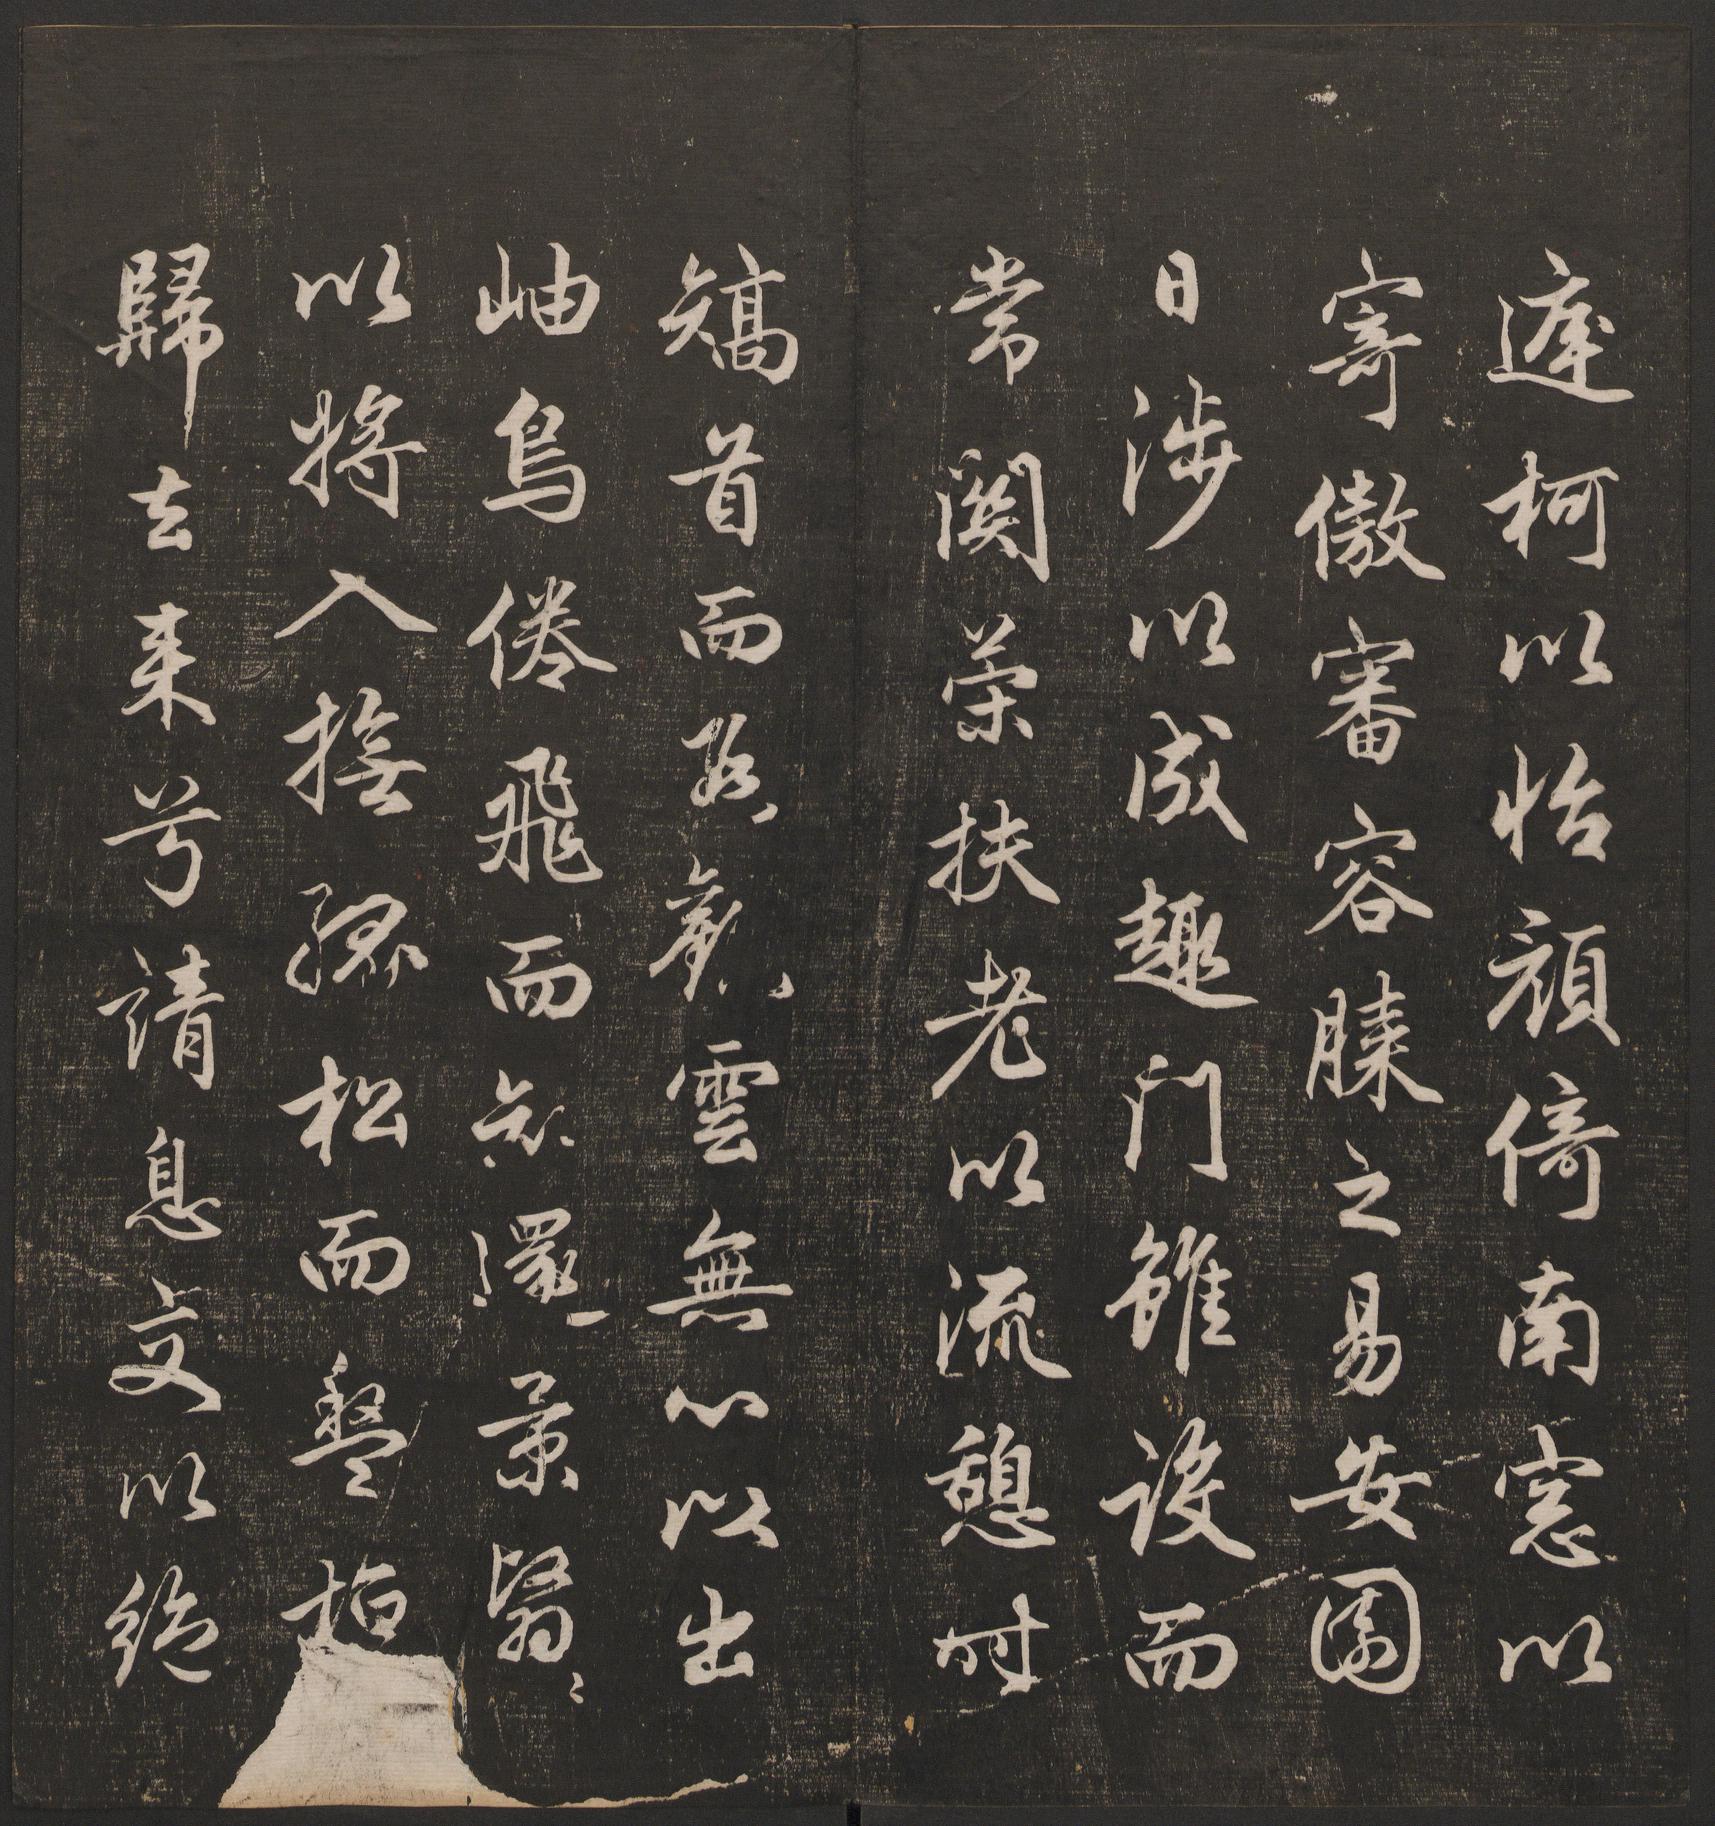 庭柯以怡顔倚南窓以
寄傲審容膝之易安園
日涉以成趣門雖設而
常関策扶老以流憩時
矯首而遐觀雲無心以出
岫鳥倦飛而知還景翳〻
以將入撫孤松而盤桓
歸去来兮請息交以絶